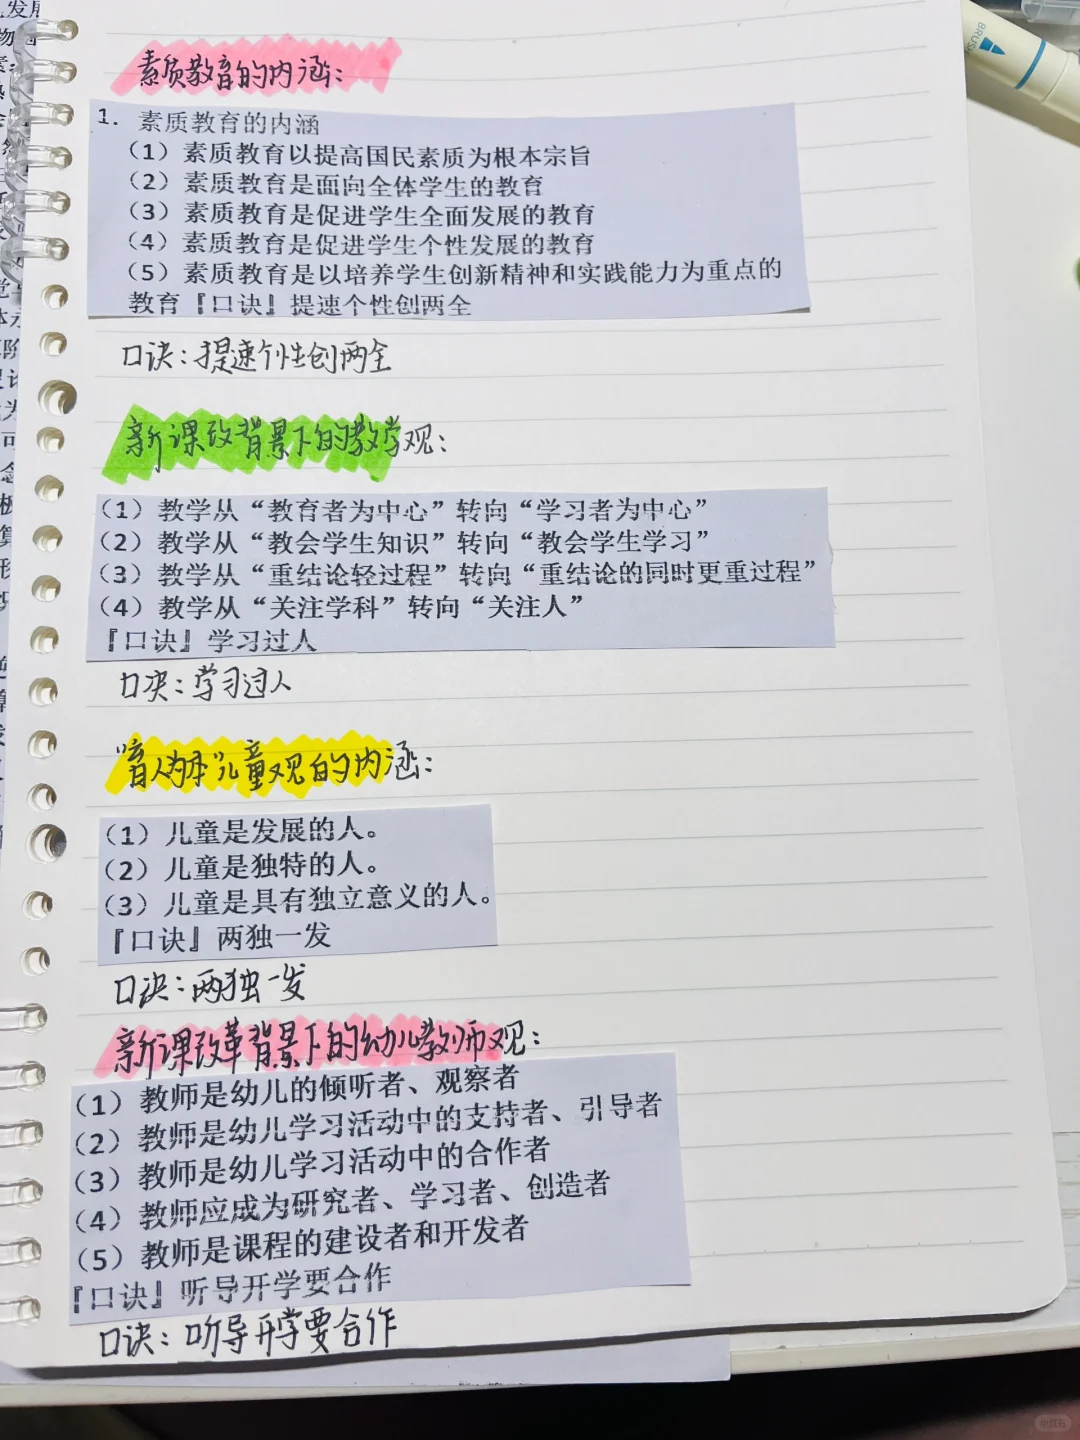 素质教育的内涵:
1. 素质教育的内涵
（1）素质教育以提高国民素质为根本宗旨
（2）素质教育是面向全体学生的教育
（3）素质教育是促进学生全面发展的教育
（4）素质教育是促进学生个性发展的教育
（5）素质教育是以培养学生创新精神和实践能力为重点的
教育『口诀』提速个性创两全
口诀:提速个性创两全
新课改背景下的教学观:
（1）教学从“教育者为中心”转向“学习者为中心”
（2）教学从“教会学生知识”转向“教会学生学习”
（3）教学从“重结论轻过程”转向“重结论的同时更重过程”
（4）教学从“关注学科”转向“关注人”
『口诀』学习过人
口诀:学习过人
“育人为本”儿童观的内涵:
（1）儿童是发展的人。
（2）儿童是独特的人。
（3）儿童是具有独立意义的人。
『口诀』两独一发
口诀:两独一发
新课改革背景下的幼儿教师观:
（1）教师是幼儿的倾听者、观察者
（2）教师是幼儿学习活动中的支持者、引导者
（3）教师是幼儿学习活动中的合作者
（4）教师应成为研究者、学习者、创造者
（5）教师是课程的建设者和开发者
『口诀』听导开学要合作
口诀:听导开学要合作
BRUSH
小红书